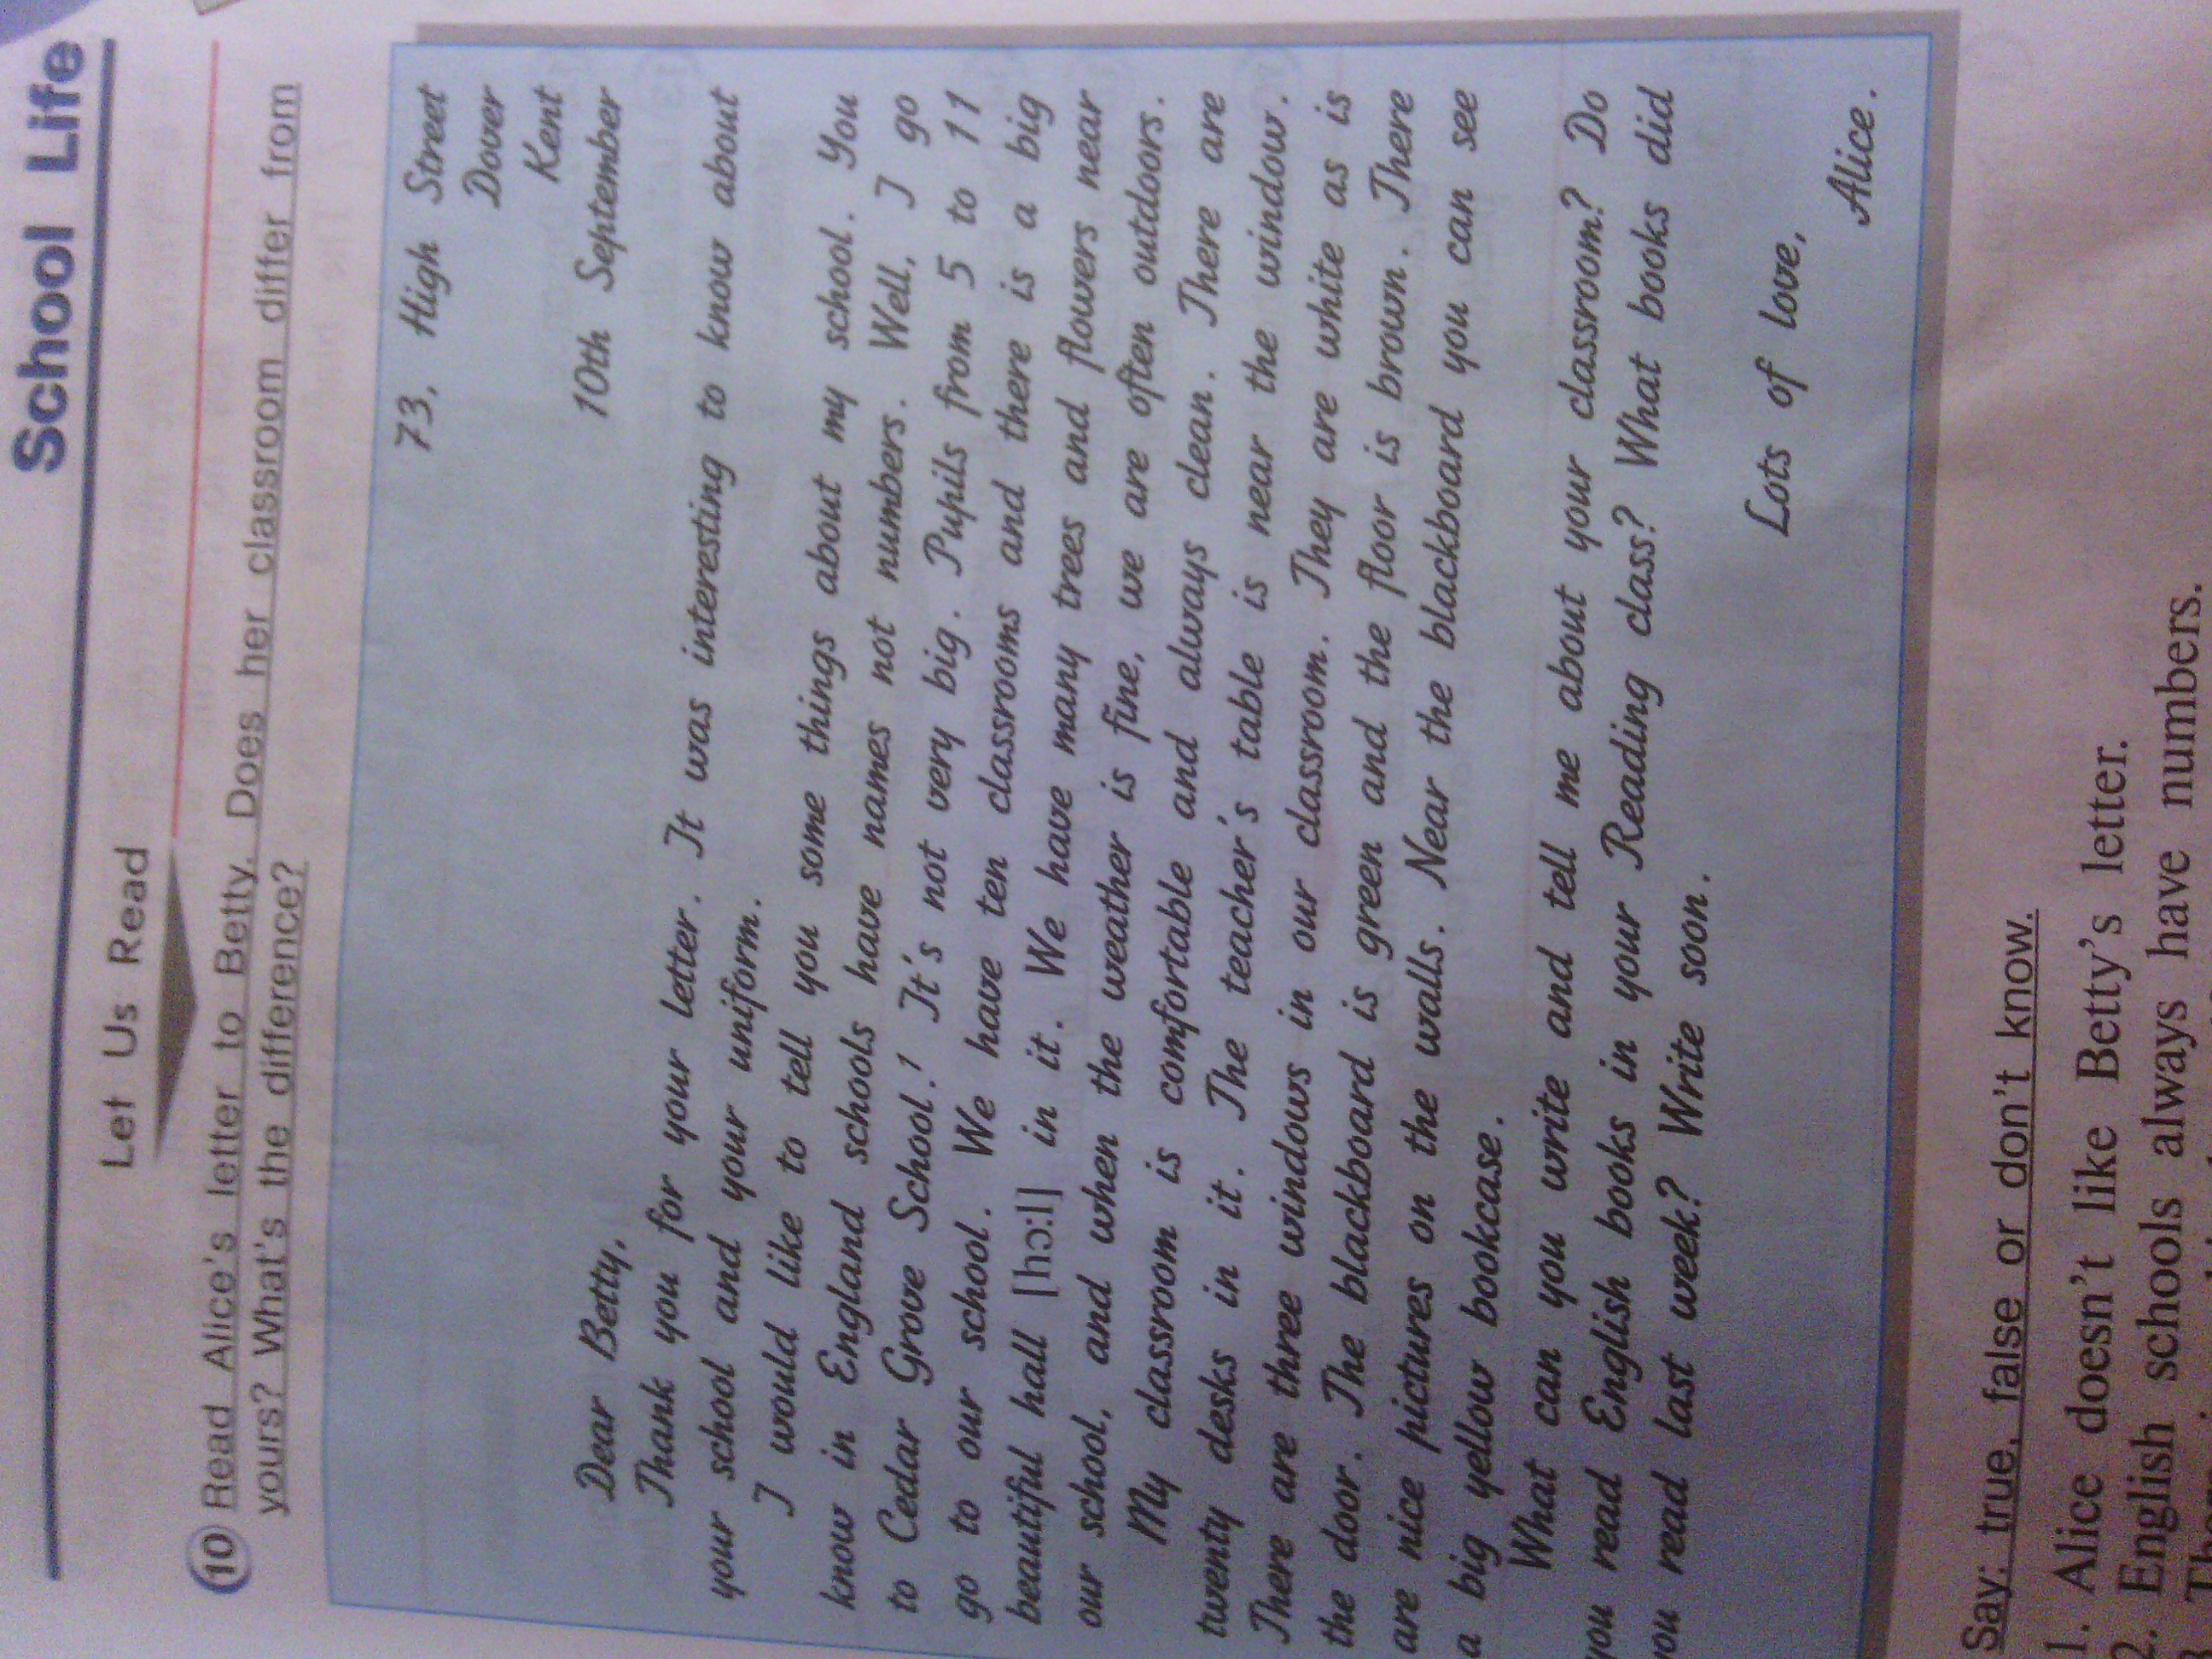 School Life
Let Us Read
10 Read Alice's letter to Betty. Does her classroom differ from
yours? What's the difference?
73, High Street
Dover
Kent
10th September
Dear Betty,
Thank you for your letter. It was interesting to know about
your school and your uniform.
I would like to tell you some things about my school. You
know in England schools have names not numbers. Well, I go
to Cedar Grove School.¹ It's not very big. Pupils from 5 to 11
go to our school. We have ten classrooms and there is a big
beautiful hall [hɔ:l] in it. We have many trees and flowers near
our school, and when the weather is fine, we are often outdoors.
My classroom is comfortable and always clean. There are
twenty desks in it. The teacher's table is near the window.
There are three windows in our classroom. They are white as is
the door. The blackboard is green and the floor is brown. There
are nice pictures on the walls. Near the blackboard you can see
a big yellow bookcase.
What can you write and tell me about your classroom? Do
you read English books in your Reading class? What books did
you read last week? Write soon.
Lots of love,
Alice.
Say: true, false or don't know.
1. Alice doesn't like Betty's letter.
2. English schools always have numbers.